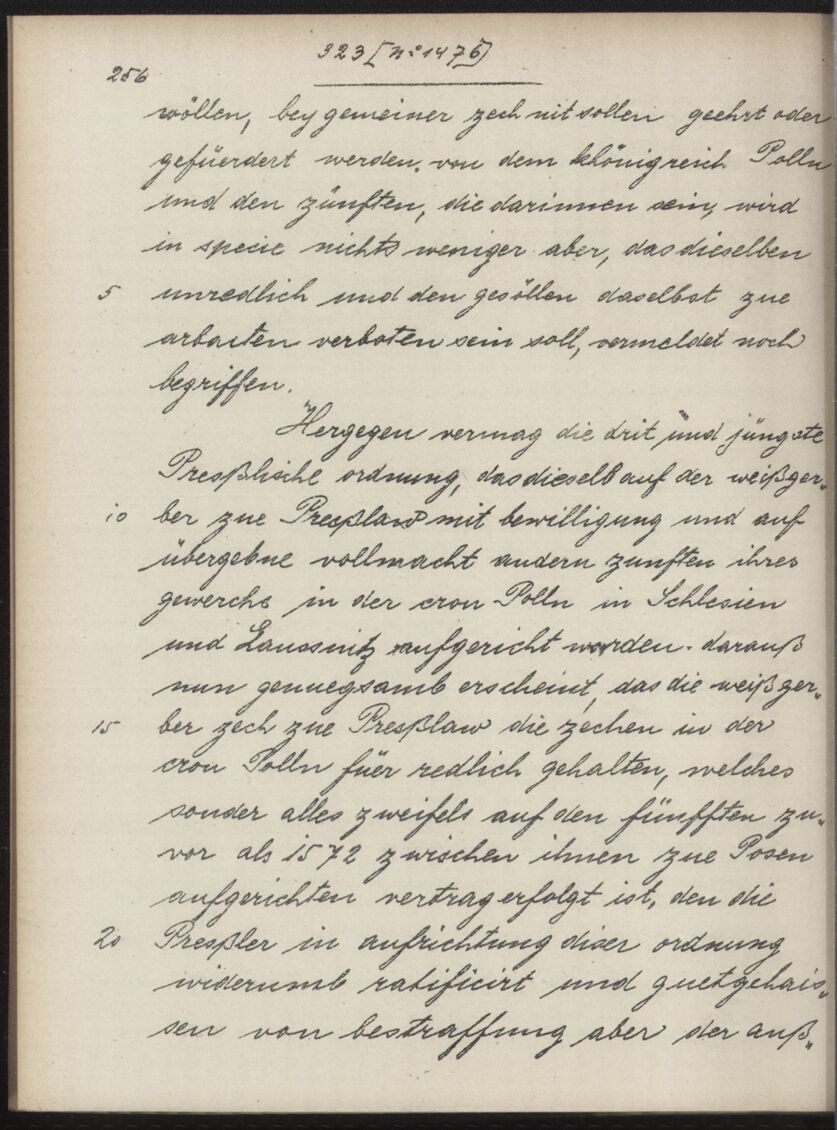 323 [nº 1476]
256
wöllen, bey gemeiner zech nit sollen geehrt oder
gefüerdert werden. von dem khönigreich Polln
und den zünften, die darinnen sein, wird
in specie nichts weniger aber, das dieselben
5 unredlich und den gesöllen daselbst zue
arbaiten verboten sein soll, vermeldet noch
begriffen.
Hergegen vermag die drit und jüngste
Presßlische ordnung, das dieselb auf der weißger„
10 ber zue Presßlaw mit bewilligung und auf
übergebne vollmacht andern zunften ihres
gewerchs in der cron Polln in Schlesien
und Laussnitz aufgericht worden. darauß
nun genuegsamb erscheint, das die weißger„
15 ber zech zue Presßlaw die zechen in der
cron Polln füer redlich gehalten, welches
sonder alles zweifels auf den fünfften zu„
vor als 1572 zwischen ihnen zue Posen
aufgerichten vertrag erfolgt ist, den die
20 Presßler in aufrichtung diser ordnung
widerumb ratificirt und guetgehais„
sen von bestraffung aber der auß„